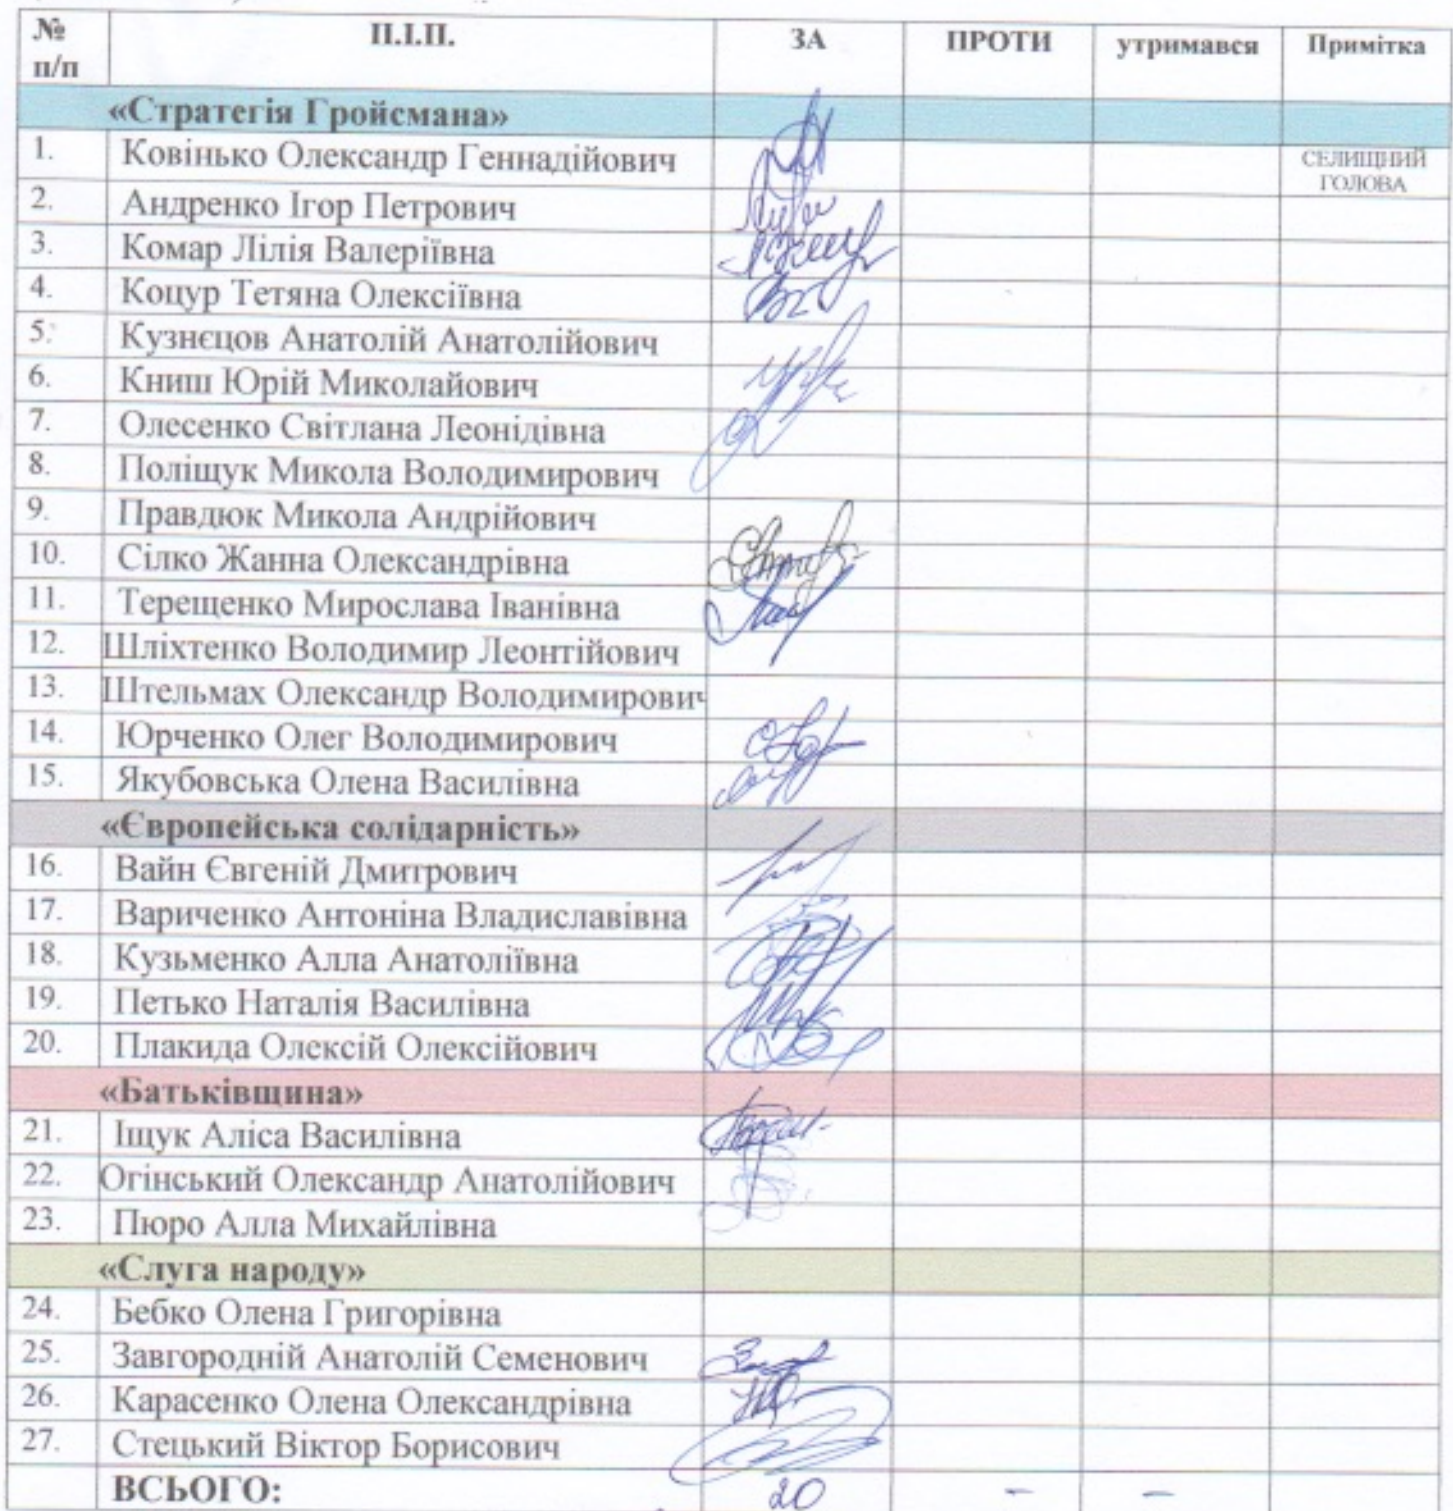 № п/п П.І.П. ЗА ПРОТИ утримався Примітка
«Стратегія Гройсмана»
1. Ковінько Олександр Геннадійович СЕЛИЩНИЙ ГОЛОВА
2. Андренко Ігор Петрович
3. Комар Лілія Валеріївна
4. Коцур Тетяна Олексіївна
5. Кузнєцов Анатолій Анатолійович
6. Книш Юрій Миколайович
7. Олесенко Світлана Леонідівна
8. Поліщук Микола Володимирович
9. Правдюк Микола Андрійович
10. Сілко Жанна Олександрівна
11. Терещенко Мирослава Іванівна
12. Шліхтенко Володимир Леонтійович
13. Штельмах Олександр Володимирович
14. Юрченко Олег Володимирович
15. Якубовська Олена Василівна
«Європейська солідарність»
16. Вайн Євгеній Дмитрович
17. Вариченко Антоніна Владиславівна
18. Кузьменко Алла Анатоліївна
19. Петько Наталія Василівна
20. Плакида Олексій Олексійович
«Батьківщина»
21. Іщук Аліса Василівна
22. Огінський Олександр Анатолійович
23. Пюро Алла Михайлівна
«Слуга народу»
24. Бебко Олена Григорівна
25. Завгородній Анатолій Семенович
26. Карасенко Олена Олександрівна
27. Стецький Віктор Борисович
ВСЬОГО: 20 - -